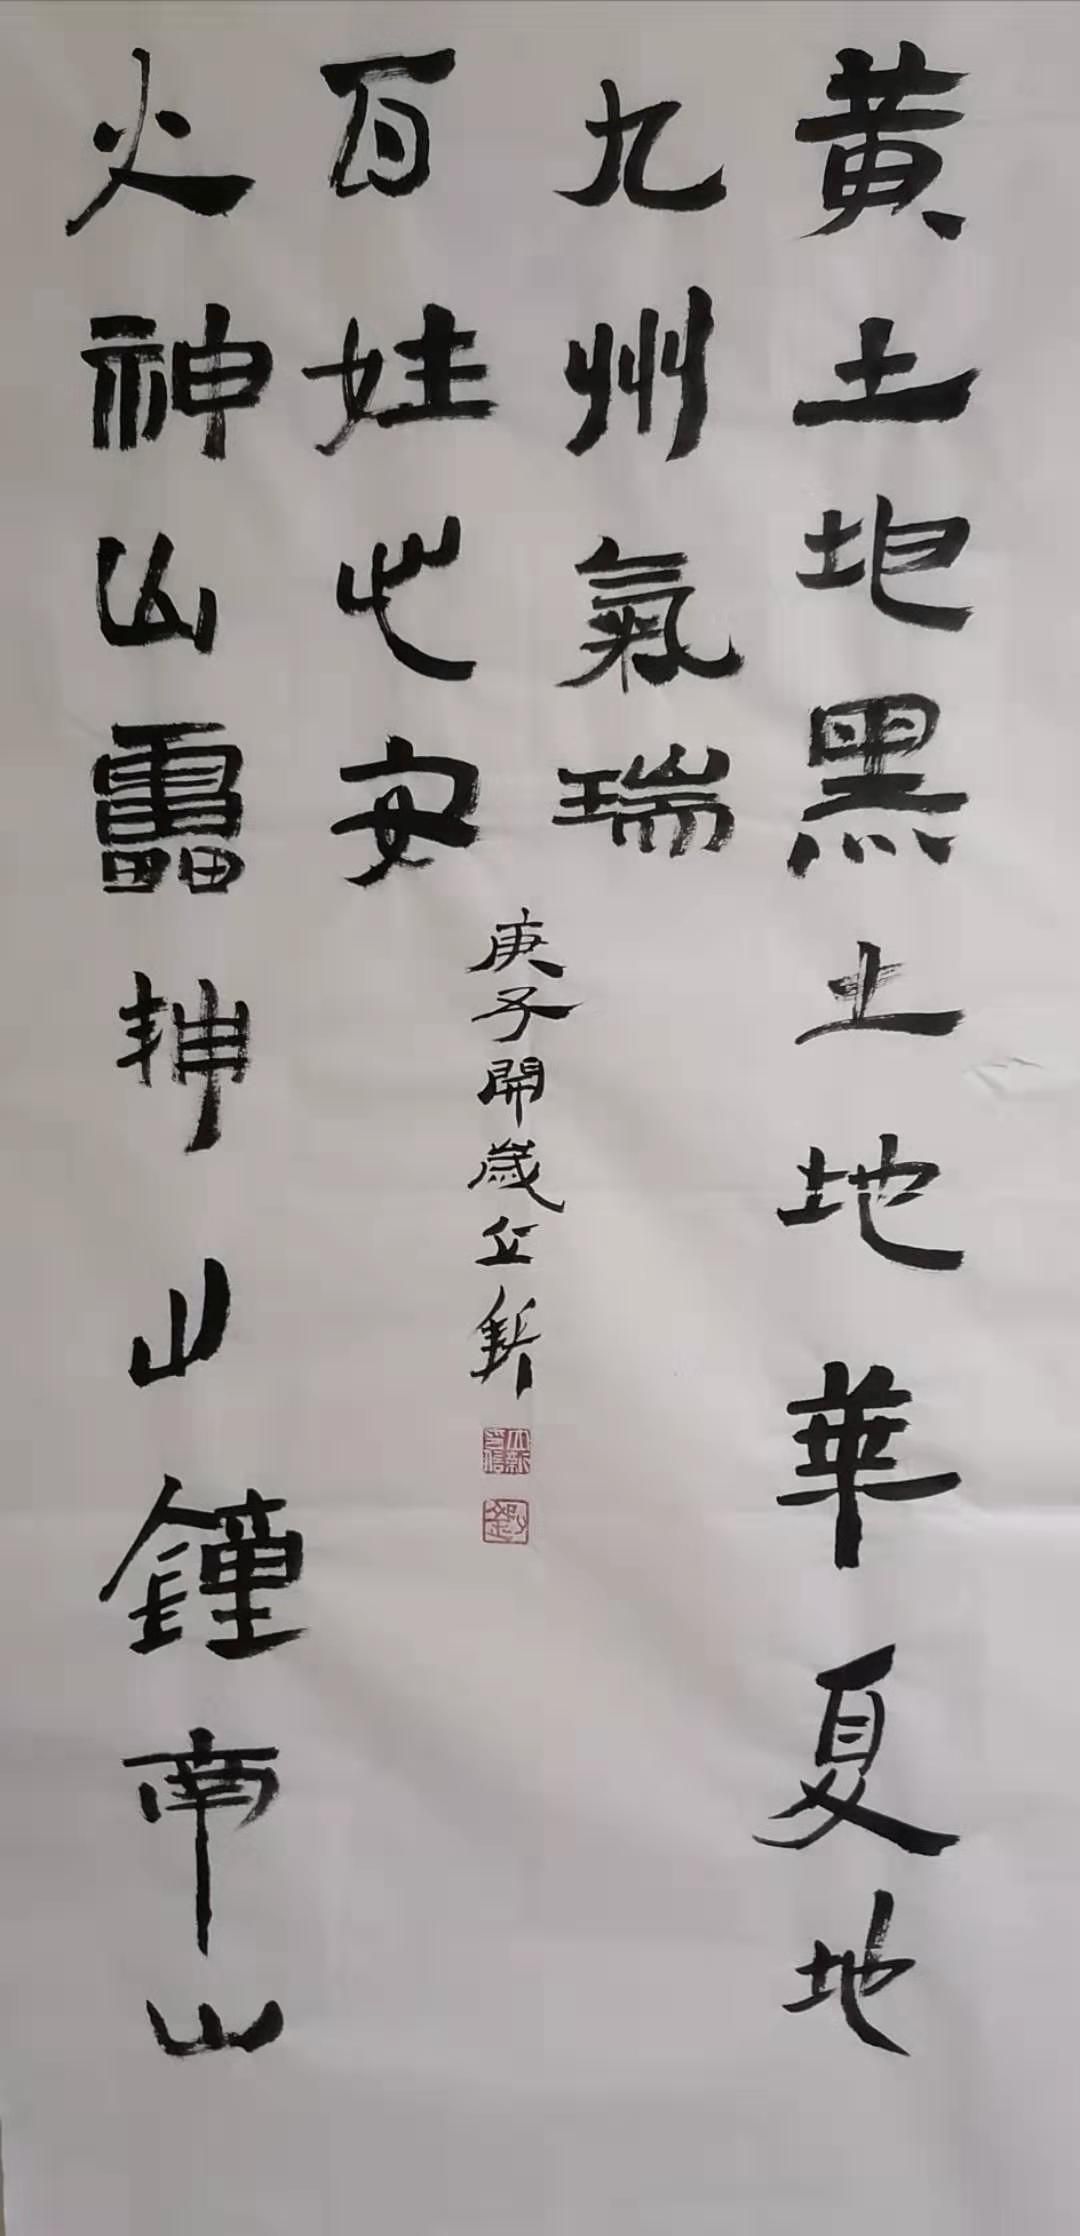 黄土地黑土地華夏地
九州氣瑞
百姓心安
火神山靁神山鐘南山
庚子開歲立新